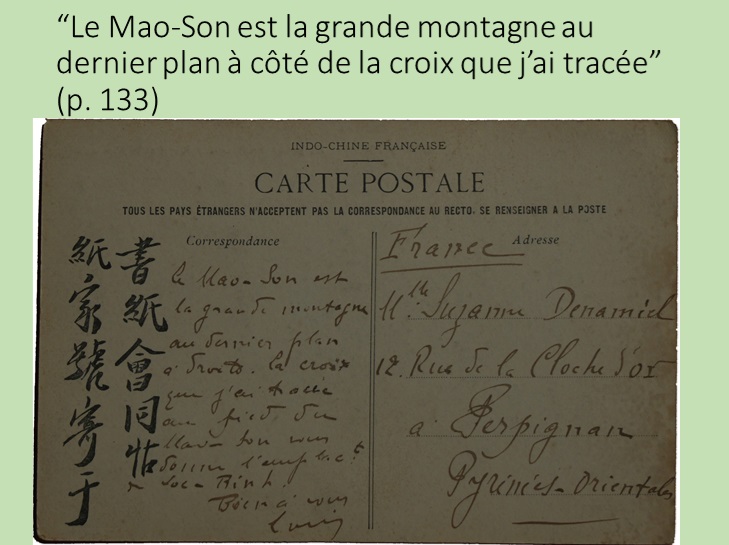 “Le Mao-Son est la grande montagne au
dernier plan à côté de la croix que j’ai tracée”
(p. 133)
INDO-CHINE FRANÇAISE
CARTE POSTALE
TOUS LES PAYS ÉTRANGERS N'ACCEPTENT PAS LA CORRESPONDANCE AU RECTO. SE RENSEIGNER A LA POSTE
Correspondance
書紙會同
紙家號寄于
le Mao-Son est
la grande montagne
au dernier plan
à droite. la croix
que j'ai tracée
au pied du
Mao-Son vous
donne l'emplact
Loc-Binh.
Bien à vous
Adresse
France
Mlle Suzanne Denamiel
12. Rue de la Cloche d'or
à Perpignan
Pyrénées-Orientales